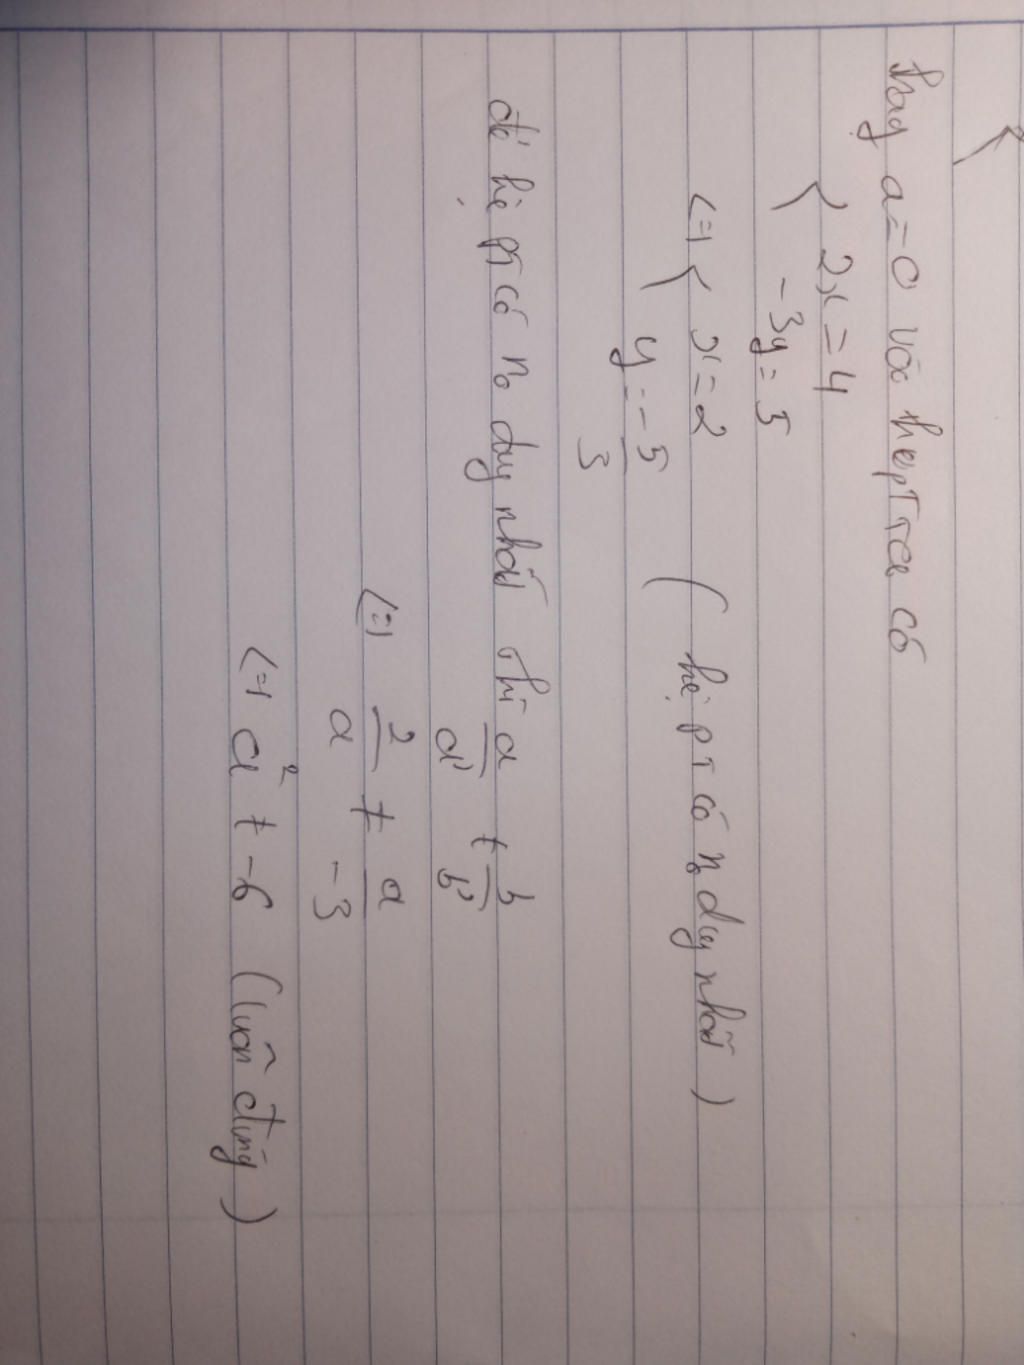 thay a=0 vào hệ pT ta có
{ 2x = 4
-3y = 5
<=> { x = 2 ( hệ pT có no duy nhất )
y = -5/3
để hệ pT có no duy nhất thì a/a' ≠ b/b'
<=> 2/a ≠ a/-3
<=> a² ≠ -6 (luôn đúng)